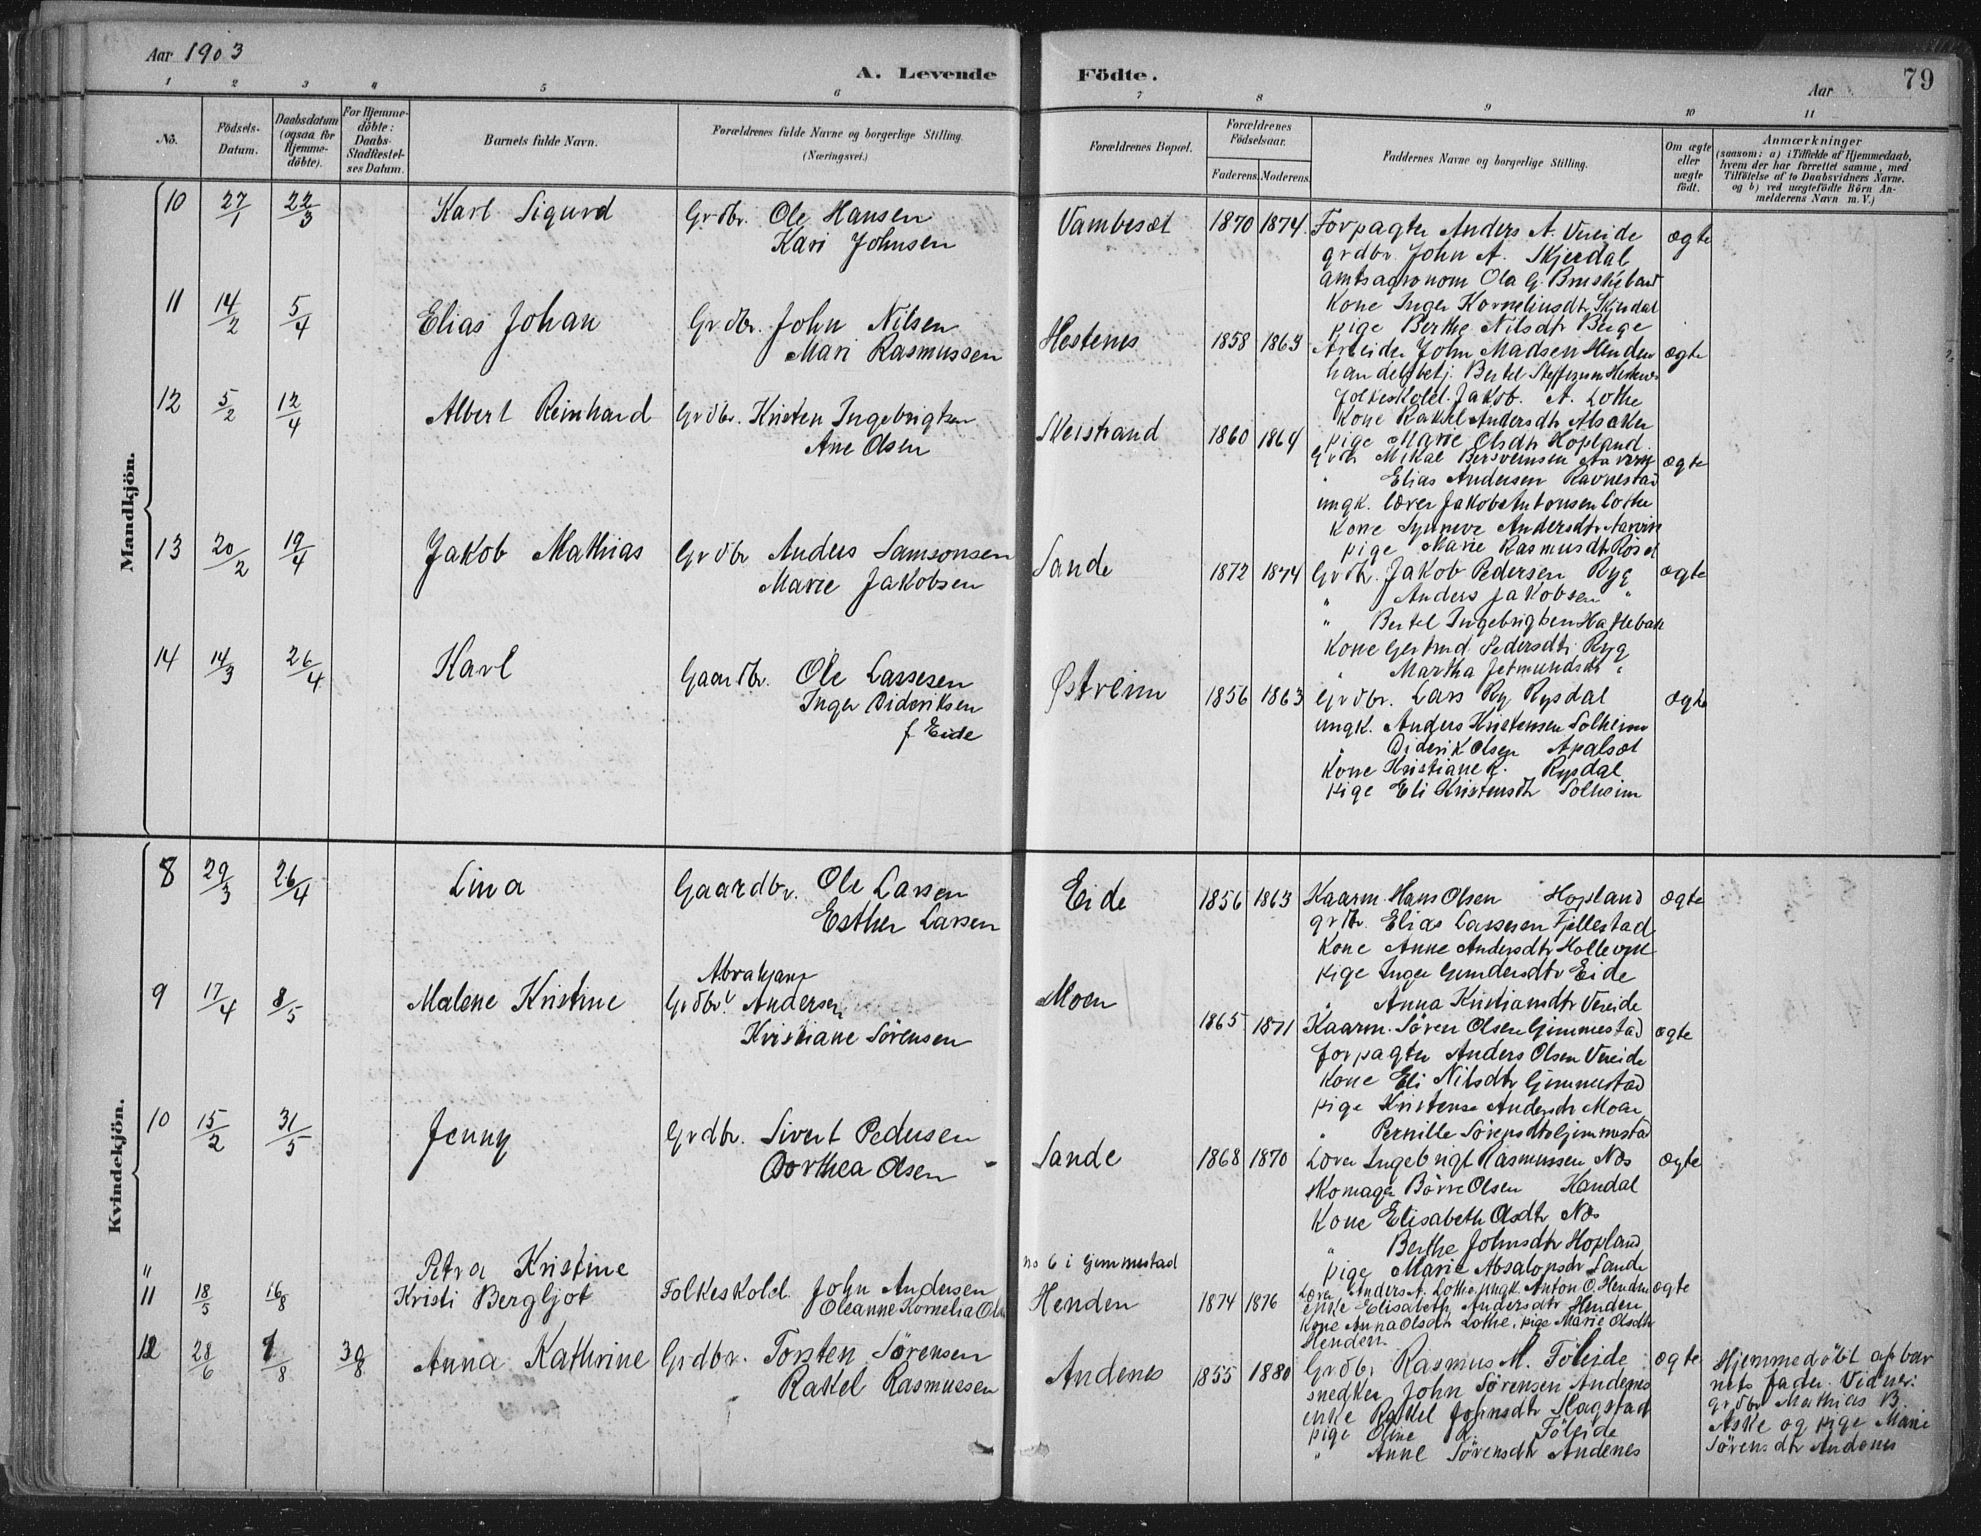 Aar 1903
A. Levende Födte.
Aar
79
1 2 3 4 5 6 7 8 9 10 11
No.
Födsels-
Datum.
Daabsdatum
(ogsaa for
Hjemme-
döbte).
For Hjemme-
döbte:
Daabs-
Stadfæstel-
ses Datum.
Barnets fulde Navn.
Forældrenes fulde Navne og borgerlige Stilling.
(Næringsvei.)
Forældrenes Bopæl.
Forældrenes
Födselsaar.
Faderens. Moderens.
Faddernes Navne og borgerlige Stilling.
Om ægte
eller
uægte
födt.
Anmærkninger
(saasom: a) i Tilfælde af Hjemmedaab,
hvem der har forrettet samme, med
Tilföielse af to Daabsvidners Navne.
og b) ved uægtefödte Börn An-
melderens Navn m. V.)
Mandkjön.
10 27/1 22/3 Karl Sigurd Grdbr. Ole Hansen
Kari Johnsen
Vambeset 1870 1874 Forpagter Anders A. Vereide ægte
grdbr. John A. Skjerdal
amtsagronom Ola G.
Kone Inger Korneliusdtr Skjerdal
pige Berthe Nilsdtr Berge
11 14/2 5/4 Elias Johan Grdbr. John Nilsen
Mari Rasmussen
Hestenes 1858 1863 Arbeider John Madsen Henden ægte
handelsbetj. Bertel Steffensen
folkeskol. Jakob A. Lothe
Kone Rakel Andersdtr Alsaker
pige Marie Olsdtr Hopland
12 5/2 12/4 Albert Reinhard Grdbr. Kristen Ingebrigtsen
Ane Olsen
Skeistrand 1860 1864 Grdbr Mikal ægte
" Elias Andersen Ravnestad
ungk. lærer Jakob Antonsen Lothe
Kone Synneve Andersdtr
pige Marie Rasmusdtr
13 20/2 19/4 Jakob Mathias Grdbr Anders Samsonsen
Marie Jakobsen
Sande 1872 1874 Grdbr. Jakob Pedersen Ryg ægte
" Anders Jakobsen "
" Bertel Ingebrigtsen
Kone Gertrud Pedersdtr Ryg
" Martha Jetmundsdtr "
14 14/3 26/4 Karl Gaardbr. Ole Lassesen
Inger Dideriksen
f Eide
Østreim 1856 1863 Grdbr. Lars Rysdal ægte
ungk. Anders Kristensen Solheim
" Diderik Olsen Apalset
Kone Kristiane R. Rysdal
pige Eli Kristensdtr Solheim
Kvindekjön.
8 29/3 26/4 Lina Gaardbr. Ole Larsen
Esther Larsen
Eide 1856 1863 Kaarm. Hans Olsen Hopland ægte
grdbr. Elias Lassesen Fjellestad
Kone Anne Andersdtr Hollevik
pige Inger Gundersdtr Eide
" Anna Kristiansdtr Vereide
9 17/4 8/5 Malene Kristine Grdbr. Abraham Andersen
Kristiane Sørensen
Moen 1865 1871 Kaarm. Sören Olsen Gimmestad ægte
forpagter Anders Olsen Vereide
Kone Eli Nilsdtr Gimmestad
pige Kristense Andersdtr Moen
" Pernille Sørensdtr Gjemmestad
10 15/2 31/5 Jenny Grdbr. Sivert Pedersen
Dorthea Olsen
Sande 1868 1870 Lærer Ingebrigt Rasmussen Næs ægte
Skomager Börre Olsen Handal
Kone Elisabeth Olsdtr Næs
" Berthe Johnsdtr Hopland
pige Marie Absalonsdtr Sande
" Petra Kristine no 6 i Gimmestad
11 18/5 16/8 Kristi Bergljot Folkeskold. John Andersen
Oleanne Kornelia Olsen
Henden 1874 1876 Lærer Anders A. Lothe, ungk. Anton O. Henden ægte
enke Elisabeth Andersdtr Henden
Kone Anna Olsdtr Lothe, pige Marie Olsdtr
Henden
12 28/6 9/8 30/8 Anna Kathrine Grdbr. Torsten Sørensen
Rakel Rasmussen
Andenes 1855 1880 Grdbr. Rasmus M. Föleide ægte
snedker John Sørensen Andenes
enke Rakel Johnsdtr Slagstad
pige Oline R. Föleide
" Anne Sörensdtr Andenes
Hjemmedöbt af bar
nets fader. Vidner:
grdbr Mathias B.
Aske og pige Marie
Sörensdtr Andenes